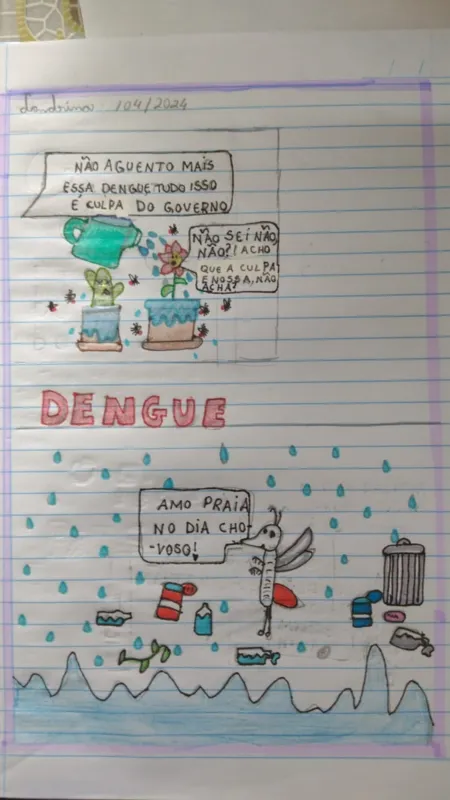 Londrina /04/2024
NÃO AGUENTO MAIS
ESSA DENGUE TUDO ISSO
É CULPA DO GOVERNO
NÃO SEI NÃO,
NÃO?! ACHO
QUE A CULPA
É NOSSA, NÃO
ACHA?
DENGUE
AMO PRAIA
NO DIA CHO-
-VOSO!